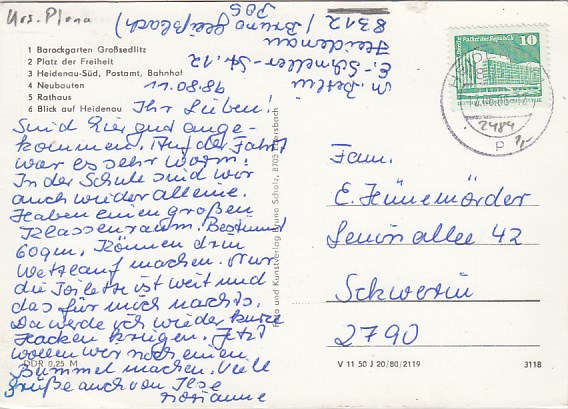 Krs. Pirna
8312 / Bruno Gleißbach
POS
Heidenau
E.-Schneller-St. 12
1 Barockgarten Großsedlitz
2 Platz der Freiheit
3 Heidenau-Süd, Postamt, Bahnhof
4 Neubauten
5 Rathaus
6 Blick auf Heidenau
11.08.86
Ihr Lieben!
Sind hier gut ange-
kommen. Auf der Fahrt
war es sehr warm.
In der Schule sind wir
auch wieder alleine.
Haben einen großen
Klassenraum. Bestimmt
60qm. Können drin
Wetzlauf machen. Nur
die Toilette ist weit und
das für mich nachts.
Da werde ich wieder kurze
Hacken kriegen. Jetzt
wollen wir noch einen
Bummel machen. Viele
Grüße auch von Ilse
Marianne
DDR 0,25 M
Foto und Kunstverlag Bruno Scholz, 8705 Ebersbach
Berlin, Palast der Republik
10
DDR
2484
P
Fam.
E. Hünemörder
Leninallee 42
Schwerin
2790
V 11 50 J 20/80/2119
3118